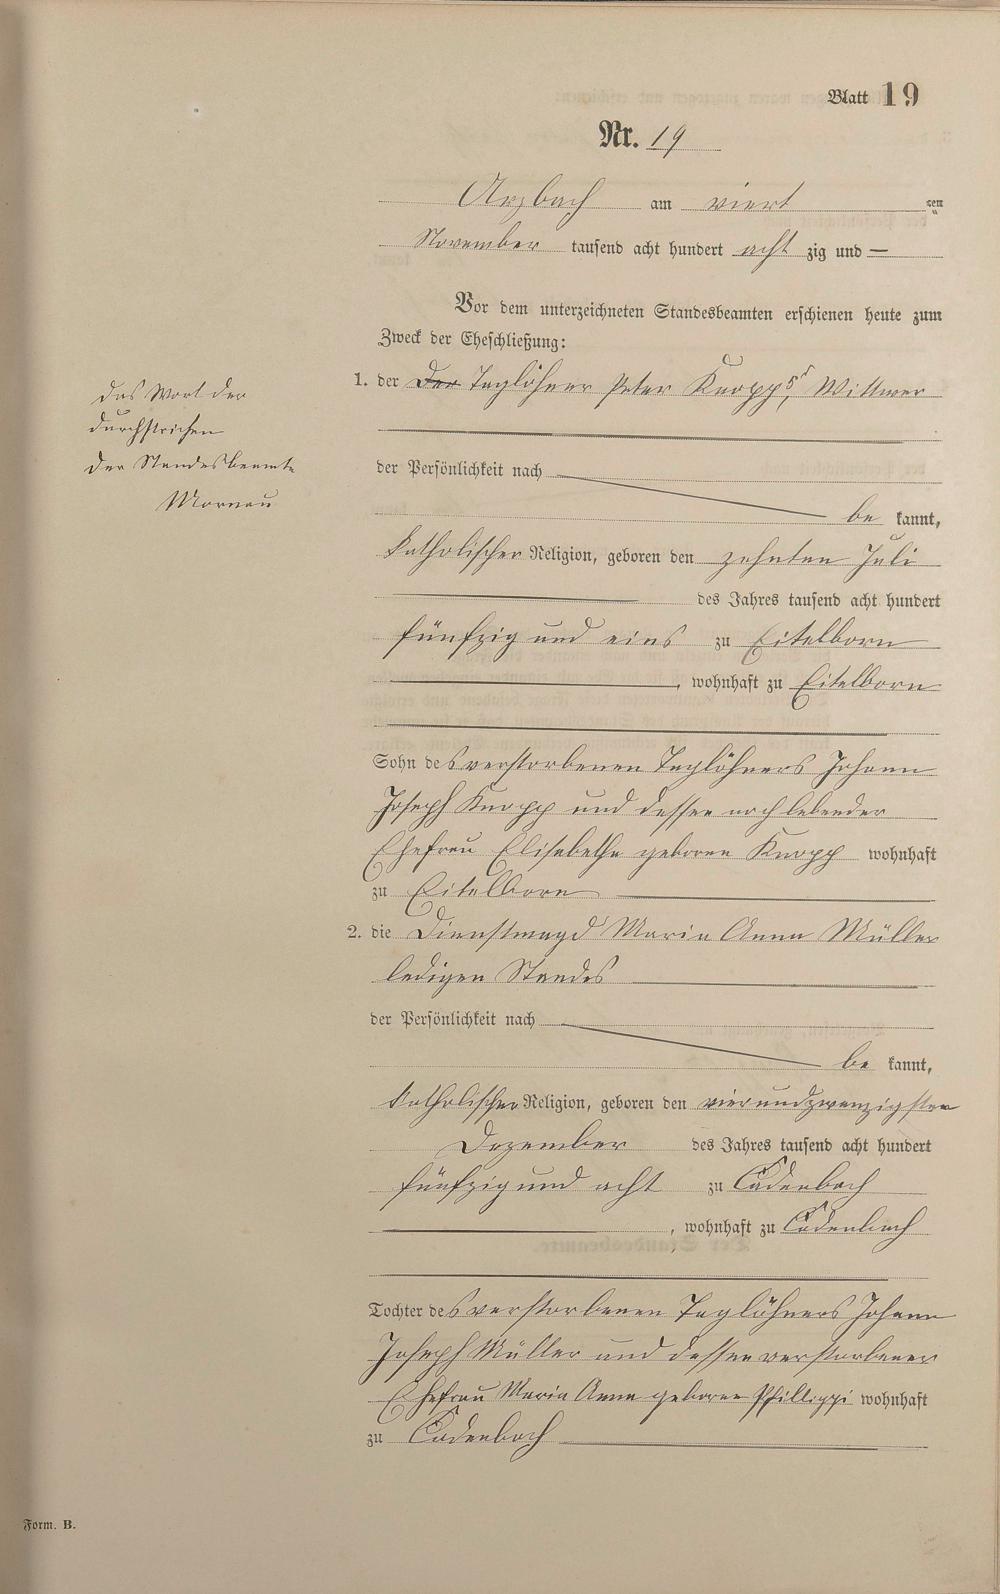 Blatt 19
Nr. 19
Arzbach am viert ten
November tausend acht hundert acht zig und —
Vor dem unterzeichneten Standesbeamten erschienen heute zum
Zweck der Eheschließung:
1. der Der Taglöhner Peter Knopp 5r, Wittwer
das Wort der
durchstrichen
der Standesbeamte
der Persönlichkeit nach
be kannt,
katholischer Religion, geboren den zehnten Juli
des Jahres tausend acht hundert
fünfzig und eins zu Eitelborn
, wohnhaft zu Eitelborn
Sohn des verstorbenen Taglöhners Johann
Joseph Knopp und dessen noch lebender
Ehefrau Elisabetha geboren Knopp wohnhaft
zu Eitelborn
2. die Dienstmagd Maria Anna Müller
ledigen Standes
der Persönlichkeit nach
be kannt,
katholischer Religion, geboren den vierundzwanzigsten
Dezember des Jahres tausend acht hundert
fünfzig und acht zu Cadenbach
, wohnhaft zu Cadenbach
Tochter des verstorbenen Taglöhners Johann
Joseph Müller und dessen verstorbener
Ehefrau Maria Anna geboren Phillippi wohnhaft
zu Cadenbach
Form. B.